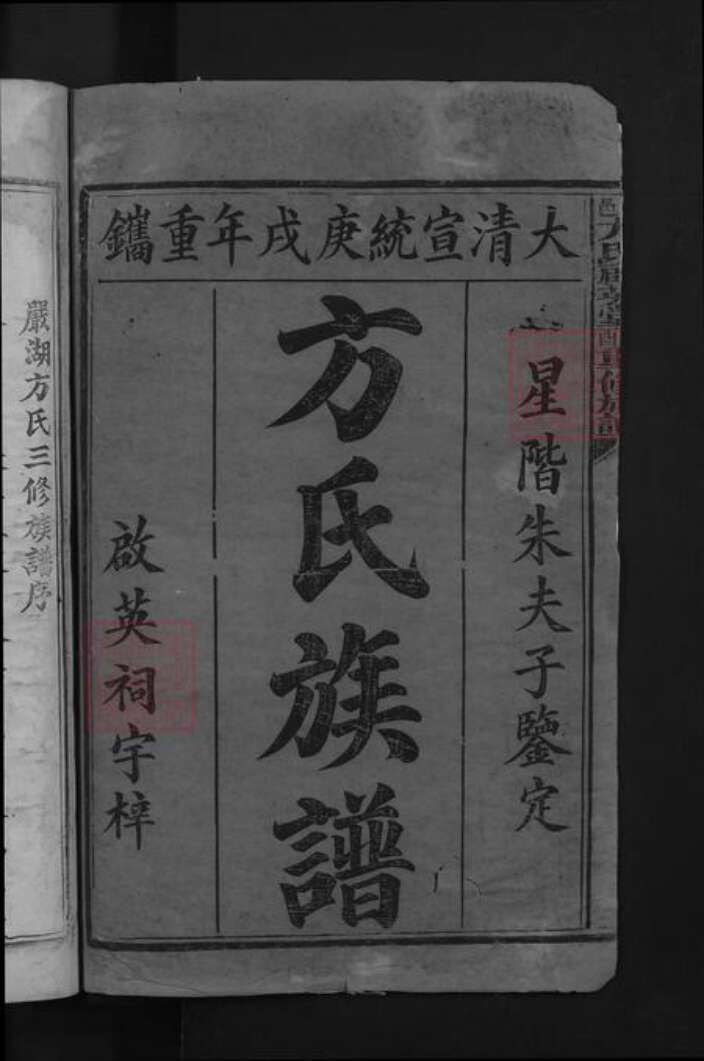 大清宣統庚戌年重鐫
星階朱夫子鑒定
方氏族譜
啟英祠宇梓
嚴湖方氏三修族譜序